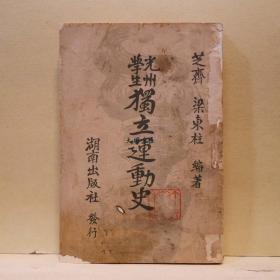 芝齊 梁東柱 編著
光州學生獨立運動史
湖南出版社 發行